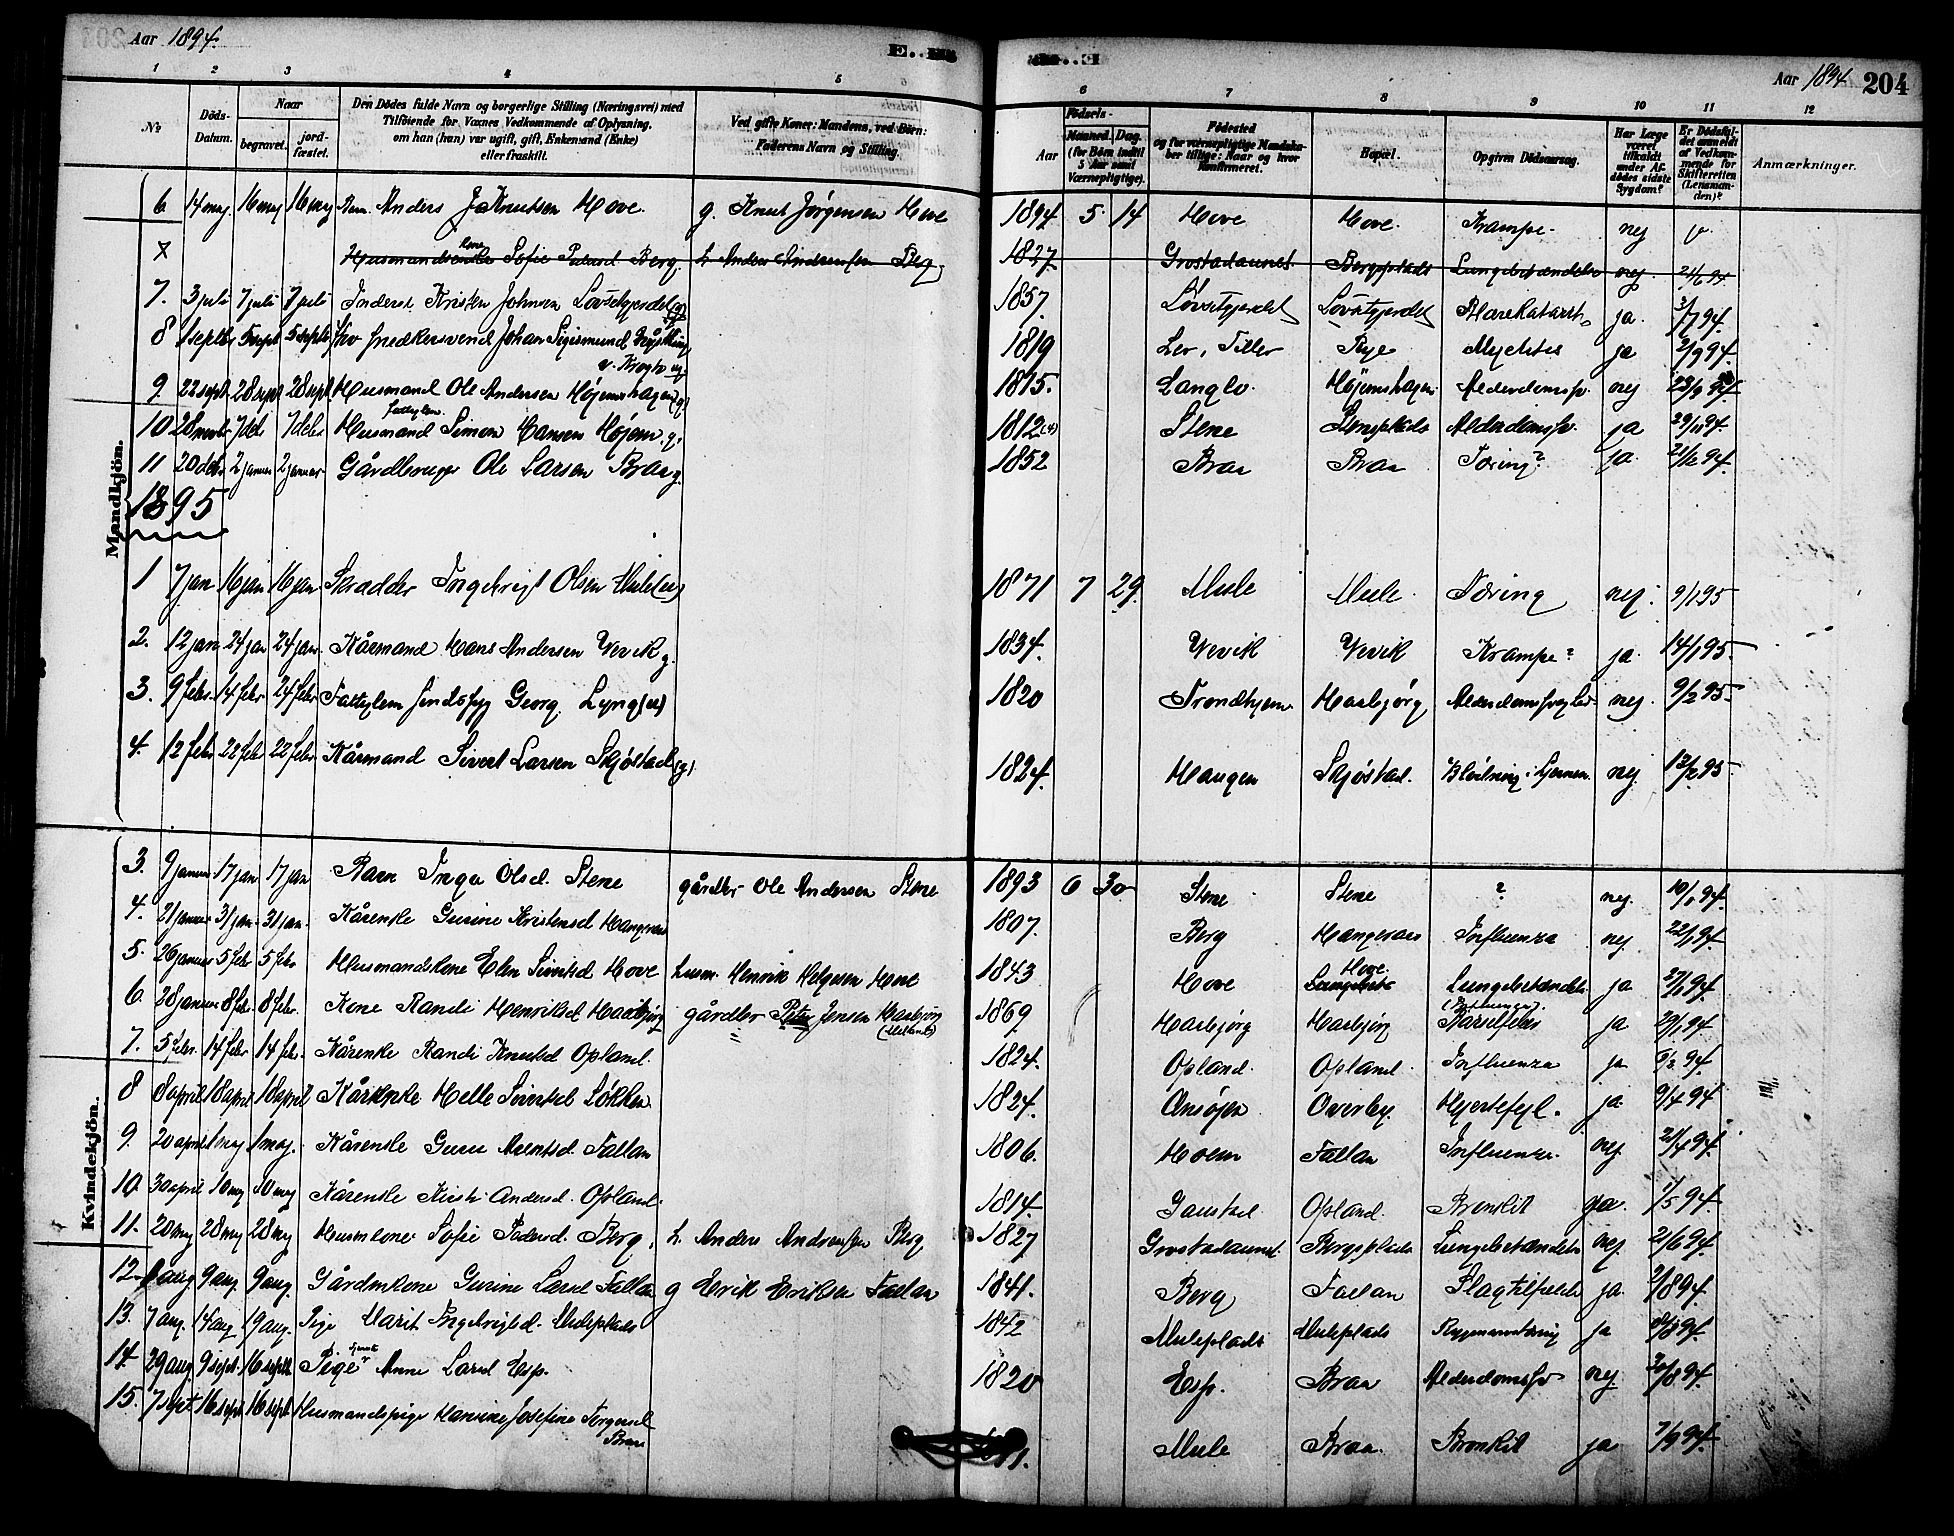 Aar 1894.
Aar 1894 204
1 2 3 4 5 6 7 8 9 10 11 12
No
Döds-Datum.
Naar
begravet.
jordfæstet.
Den Dödes fulde Navn og borgerlige Stilling (Næringsvei) med Tilföiende for Voxnes Vedkommende af Oplysning, om han (hun) var ugift, gift, Enkemand (Enke) eller fraskilt.
Ved gifte Koner: Mandens, ved Börn: Faderens Navn og Stilling.
Födsels-
Aar
Maaned. Dag.
(for Börn indtil 5 Aar samt Værnepligtige).
Födested
og for værnepligtige Mandskaber tillige: Naar og hvor konfirmeret.
Bopæl.
Opgiven Dödsaarsag.
Har Læge været tilkaldt under Afdödes sidste Sygdom?
Er Dödsfaldet anmeldt af Vedkommende for Skifteretten (Lensmanden)?
Anmærkninger.
Mandkjön.
6 14 maj 16 maj 16 maj Barn Anders Knutsen Hove. g. Knut Jørgensen Hove 1894 5 14 Hove Hove Krampe nej
x Sofie Berg Anders Andersen Berg 1827 Grostadaunet Bergsplads Lungebetændelse nej
7. 3 juli 7 juli 7 juli Inderst Kristen Johnsen 1857. ja 3/7 94.
8 1 septbr 5 sept 5 septbr Snedkersvend Johan Sigismund v. Krogh 1819 Ler, Tiller Rye ja 2/9 94.
9. 22 sept. 28 sept 28 sept Husmand Ole Andersen Højemshagen (g) 1815. Langlo. Højemshagen Alderdomssv. nej
10 28 novbr 7 debr 7 debr Husmand Simon Hansen Højem. g. 1812 Stene Stensplads Alderdomssv. ja 29/11 94.
11 20 debr 2 januar 2 januar Gårdbruger Ole Larsen Braa g. 1852 Braa Braa Tæring? ja. 21/12 94.
1895
1 7 jan 16 jan 16 jan Skrædder Ingebrigt Olsen Mule (u) 1871 7 29. Mule Mule Tæring nej. 9/1 95
2. 12 jan 24 jan 24 jan Kårmand Hans Andersen Vevik g. 1834. Vevik Vevik Krampe? ja 14/1 95.
3. 9 febr. 14 febr 24 febr Fattiglem Georg Lyng (u) 1820 Trondhjem Haabjørg nej. 9/2 95
4. 12 febr 22 febr 22 febr Kårmand Sivert Larsen Skjøstad (g) 1824. Haugen Skjøstad. Blødning i Hjernen. nej 13/2 95
Kvindekjön.
3. 9 januar 17 jan 17 jan Barn Inga Olsd. Stene gårdbr Ole Andersen Stene 1893 6 30 Stene Stene ? nej. 10/1 94.
4. 21 januar 31 jan. 31 jan. Kårenke Gurine Kristensd 1807. Berg Influenza nej 22/1 94
5. 26 januar 5 febr 5 febr Husmandskone Elen Sivertsd Hove husm. Henrik Helgesen Hove 1843 Hove Hove Lungebetændelse ja 27/1 94
6. 28 januar 8 febr 8 febr. Kone Randi Henriksd Haabjørg gårdbr Peter Jensen Haabjørg 1869 Haabjørg Haabjørg (Influenza) Barselfeber ja 29/1 94
7. 5 febr. 14 febr 14 febr. Kårenke Randi Knutsd Opland. 1824. Opland. Opland. Influenza ja 94.
8 8 april 18 april 18 april Kårenke Helle Sivertsd Løkken 1824. Overby. Hjertefejl. ja 9/4 94
9. 20 april 1 maj 1 maj. Kårenke Guru Arentsd Fallan 1806. Hovin Fallan Influenza nej 21/4 94.
10. 30 april 10 maj 10 maj Kårenke Kirsti Andersd. Opland. 1814. Gaustad Opland. Bronkit ja. 1/5 94.
11. 20 maj 28 maj 28 maj Husmkone Sofie Pedersd. Berg. h. Anders Andersen Berg 1827 Grostadaunet. Bergsplads Lungebetændelse nej 2/6 94.
12. aug 9 aug. 9 aug. Gårdmkone Gurine Larsd Fallan g Erik Eriksen Fallan 1841. Berg Fallan Slagtilfælde ja. 2/8 94.
13. 7 aug. 14 aug 19 aug. Pige Marit Ingebrigtsd. Muleplads 1842 Muleplads Muleplads Rygmarvstæring ja 94.
14. 29 aug. 9 sept. 16 septbr Pige Anne Larsd Esp. 1820 Esp. Braa Alderdomssv nej 30/8 94.
15. 7 sept. 16 sept. 16 sept Husmandspige Hansine Josefine Torgersd Braa Mule Braa. Bronkit ja 7/9 94.